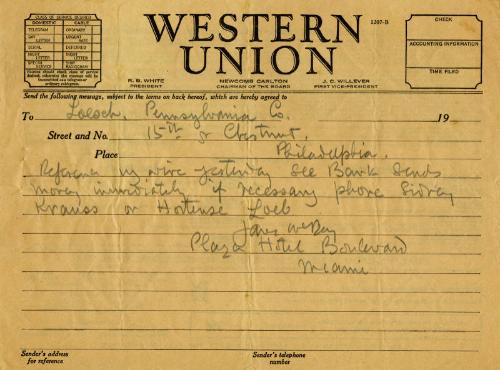 CLASS OF SERVICE DESIRED
DOMESTIC CABLE
TELEGRAM ORDINARY
DAY LETTER URGENT RATE
SERIAL DEFERRED
NIGHT LETTER NIGHT LETTER
SPECIAL SERVICE SHIP RADIOGRAM
Patrons should check class of service desired; otherwise the message will be transmitted as a telegram or ordinary cablegram.
WESTERN UNION
1207-B
CHECK
ACCOUNTING INFORMATION
TIME FILED
R. B. WHITE NEWCOMB CARLTON J. C. WILLEVER
PRESIDENT CHAIRMAN OF THE BOARD FIRST VICE-PRESIDENT
Send the following message, subject to the terms on back hereof, which are hereby agreed to
To Loesch, Pennsylvania Co. 19
Street and No. 15th & Chestnut,
Place Philadelphia.
Reference my wire yesterday see Bank sends
money immediately if necessary phone Sidney
Krauss or Hortense Loeb
Plaza Hotel Boulevard
Miami
Sender's address for reference
Sender's telephone number